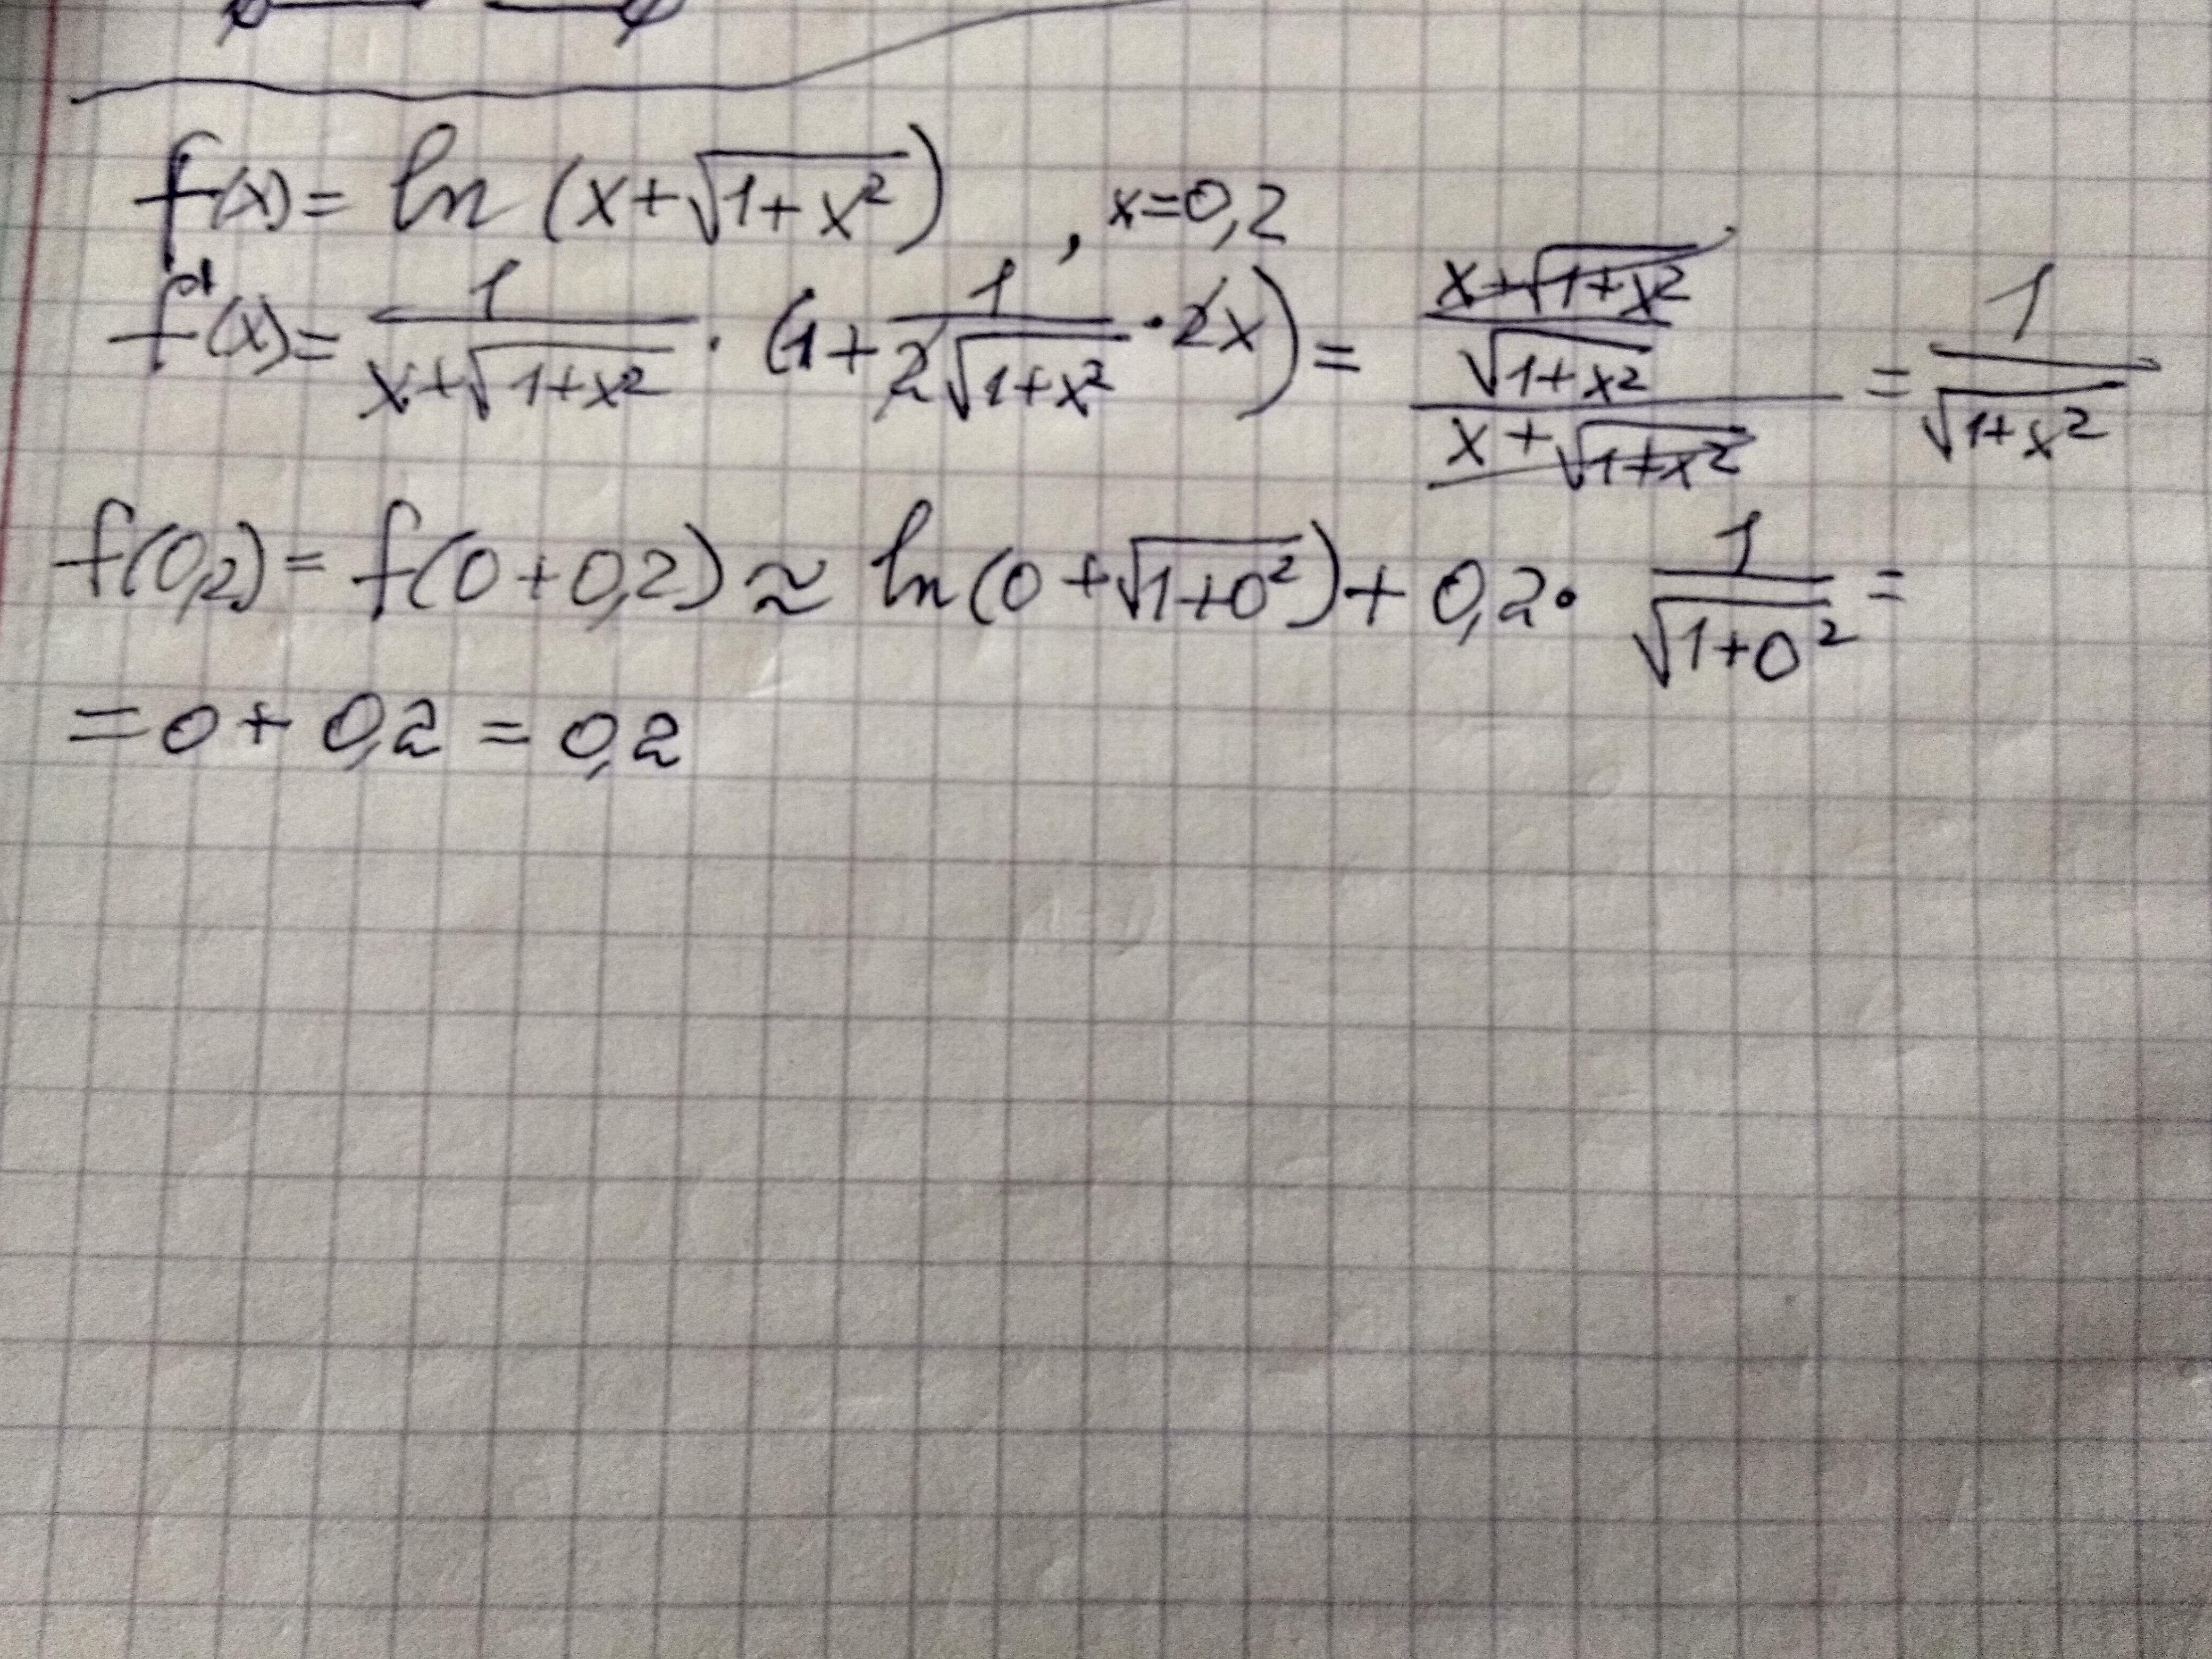 f(x) = ln (x+√(1+x²)) , x=0,2
f'(x) = 1/(x+√(1+x²)) · (1+1/(2√(1+x²)) · 2x) = ((x+√(1+x²))/√(1+x²))/(x+√(1+x²)) = 1/√(1+x²)
f(0,2) = f(0+0,2) ≈ ln(0+√(1+0²)) + 0,2 · 1/√(1+0²) =
= 0 + 0,2 = 0,2